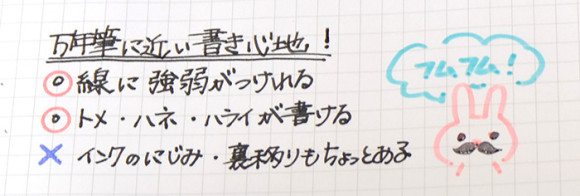 万年筆に近い書き心地!
◎線に強弱がつけれる
◎トメ・ハネ・ハライが書ける
×インクのにじみ・裏移りもちょっとある
フムフム!